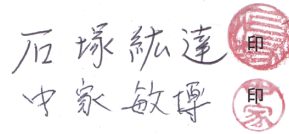 石塚紘達 印
中家敏博 印